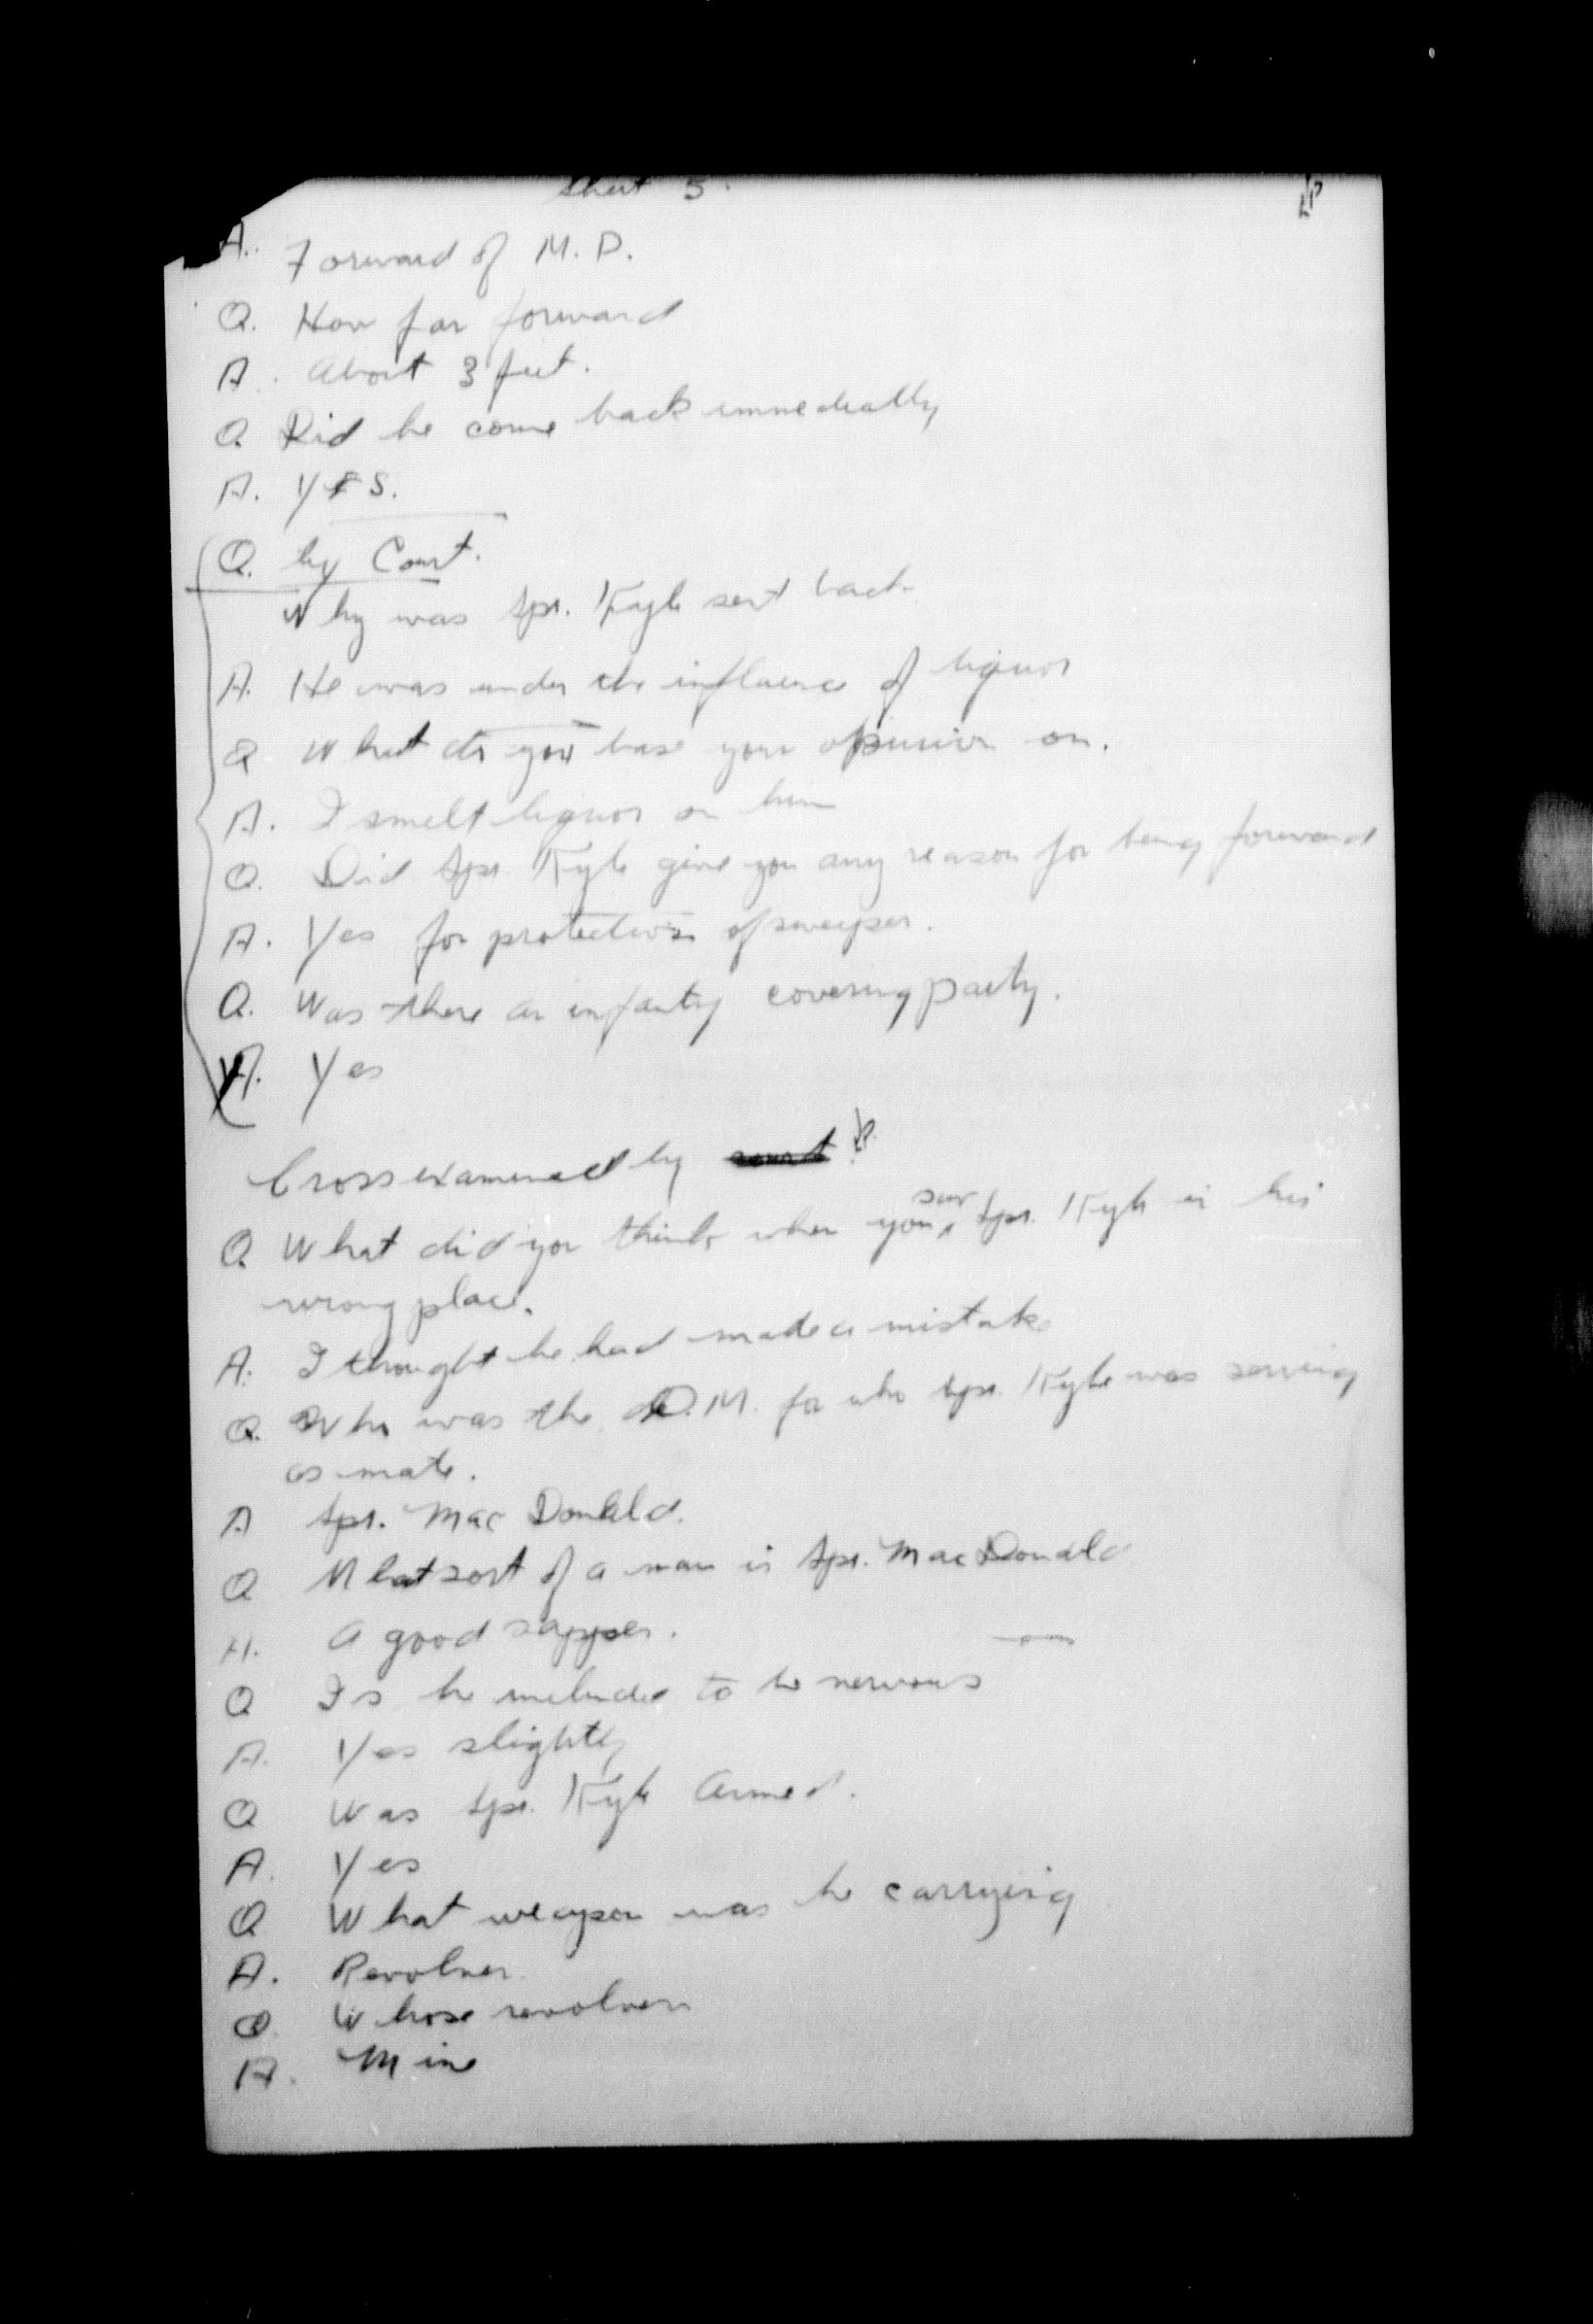 Sheet 5.
A. Forward of M. D.
Q. How far forward
A. About 3 feet.
Q Did he come back immediatly
A. YES.
Q. by Court.
Why was Spr. Kyle sent back
A. He was under the influence of liquor
Q What do you base your opinion on.
A. I smelt liquor on him
Q. Did Spr. Kyle give you any reason for being forward
A. Yes for protection of sweeper.
Q. Was there an infantry covering party.
A. Yes
Cross examined by
Q. What did you think when you saw Spr. Kyle in his
wrong place.
A. I thought he had made a mistake
Q. Who was the D.M. for who Spr. Kyle was serving
as mate.
A Spr. Mac Donald.
Q What sort of a man is Spr. Mac Donald
A. A good sapper.
Q Is he inclined to be nervous
A. Yes slightly
Q Was Spr. Kyle Armed.
A. Yes
Q What weapon was he carrying
A. Revolver
Q. Whose revolver
A. Mine